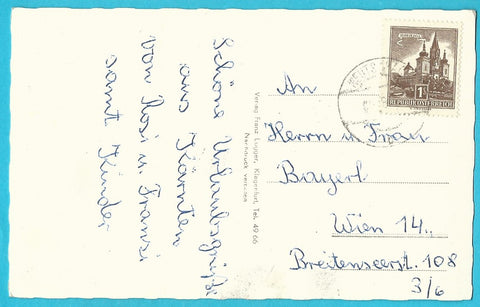 Schöne Urlaubsgrüße
aus Kärnten
von Rosi u. Franzi
samt Kinder
Verlag Franz Lugger, Klagenfurt, Tel. 49 66
Nachdruck verboten
1S
REPUBLIK ÖSTERREICH
An
Herrn u. Frau
Bayerl
Wien 14..
Breitenseerst. 108
3/6